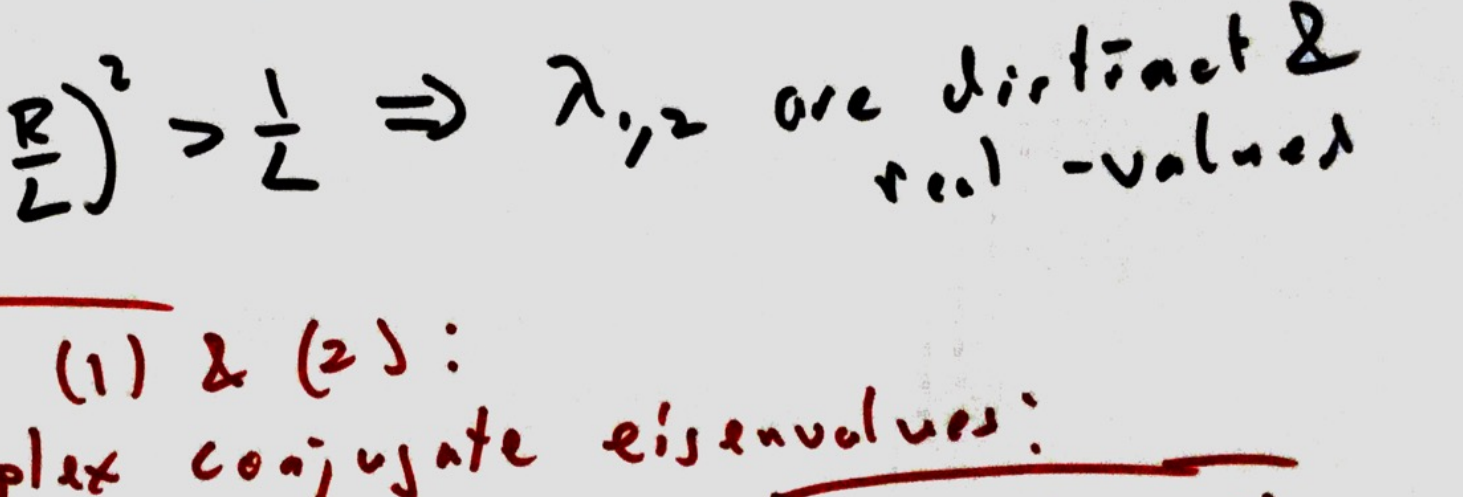 R/L)² > 1/L ⇒ λ₁,₂ are distinct &
real-valued
(1) & (2):
plex conjugate eigenvalues: